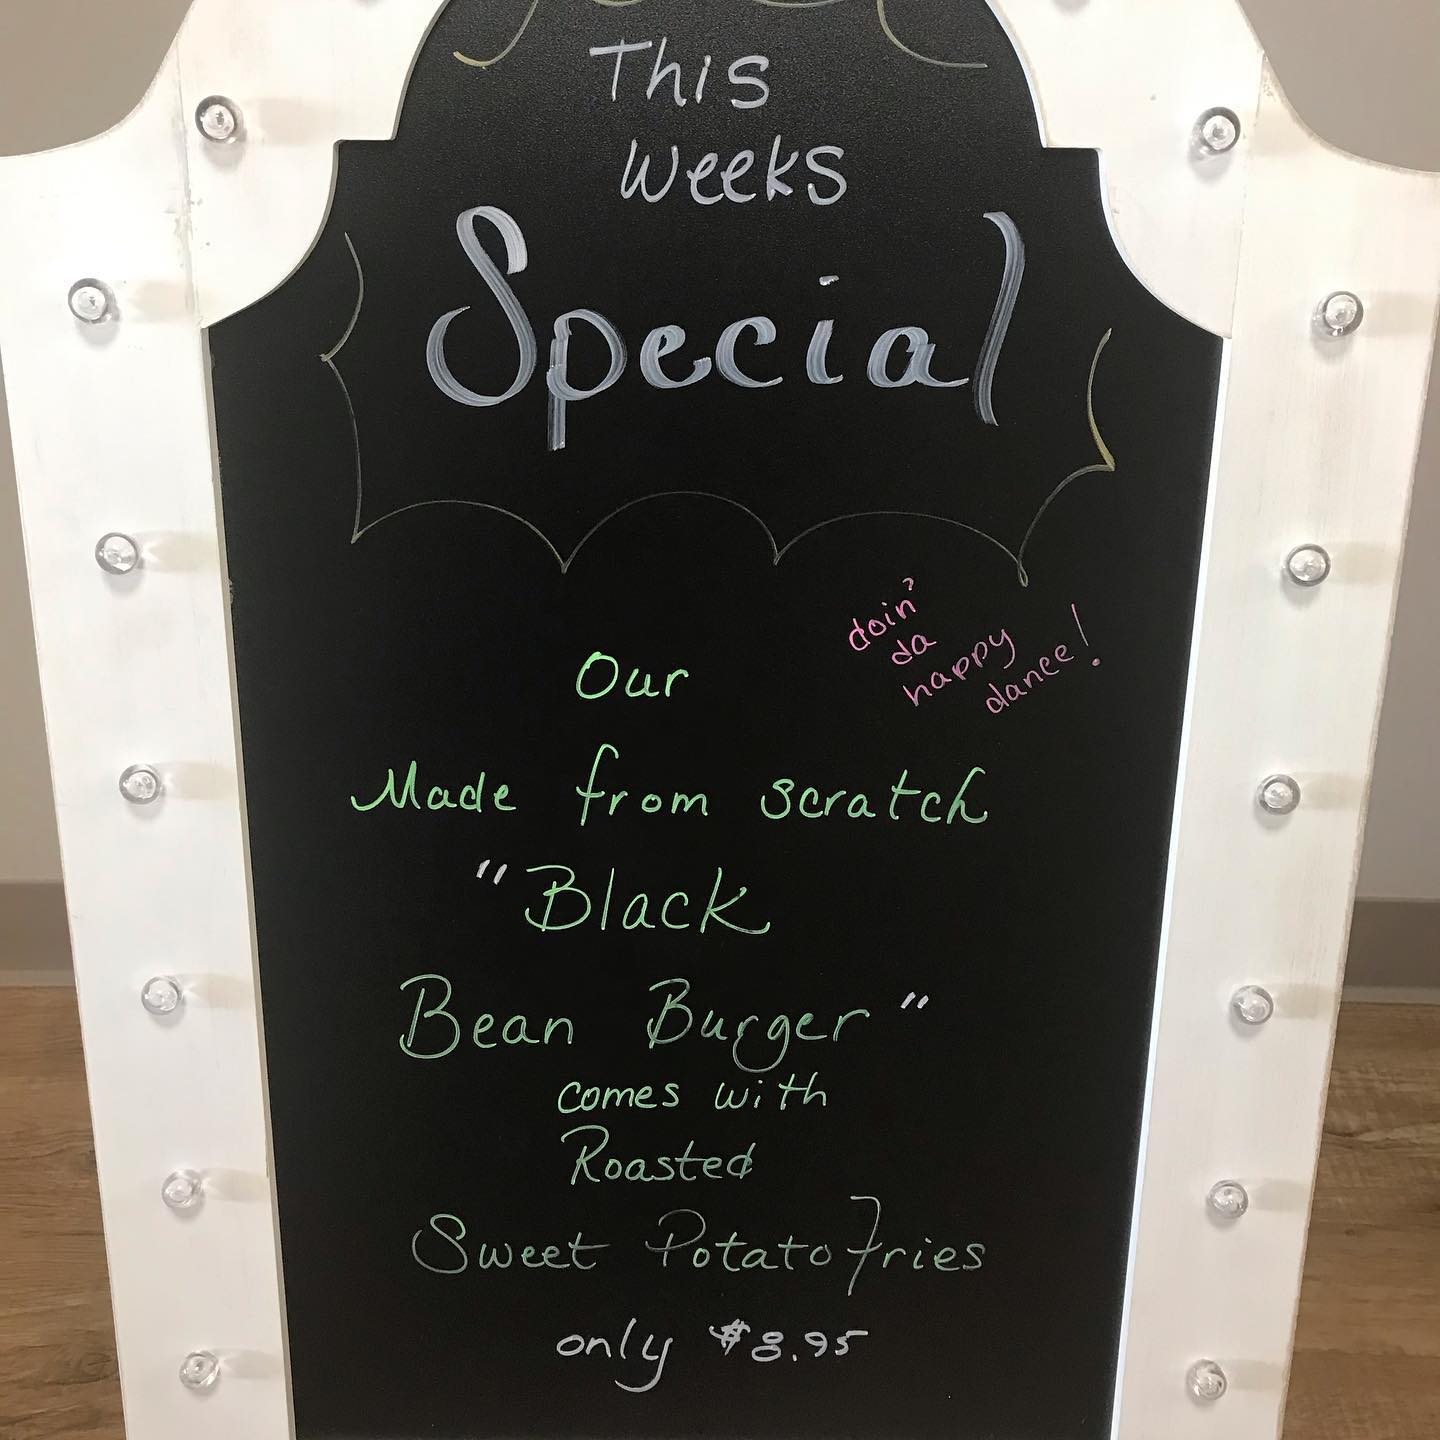 This
Weeks
Special
doin'
da
happy
dance!
Our
Made from scratch
"Black
Bean Burger"
comes with
Roasted
Sweet Potato Fries
only $8.95